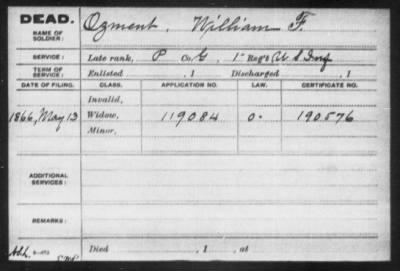 DEAD.
NAME OF SOLDIER:
Ozment, William F.
SERVICE:
Late rank, P Co. G, 1" Reg't U. S. Inf
TERM OF SERVICE:
Enlisted , 1 Discharged , 1
DATE OF FILING. CLASS. APPLICATION NO. LAW. CERTIFICATE NO.
Invalid,
1866, May 13 Widow, 119084 0- 190576
Minor,
ADDITIONAL SERVICES:
REMARKS:
Died , 1 , at